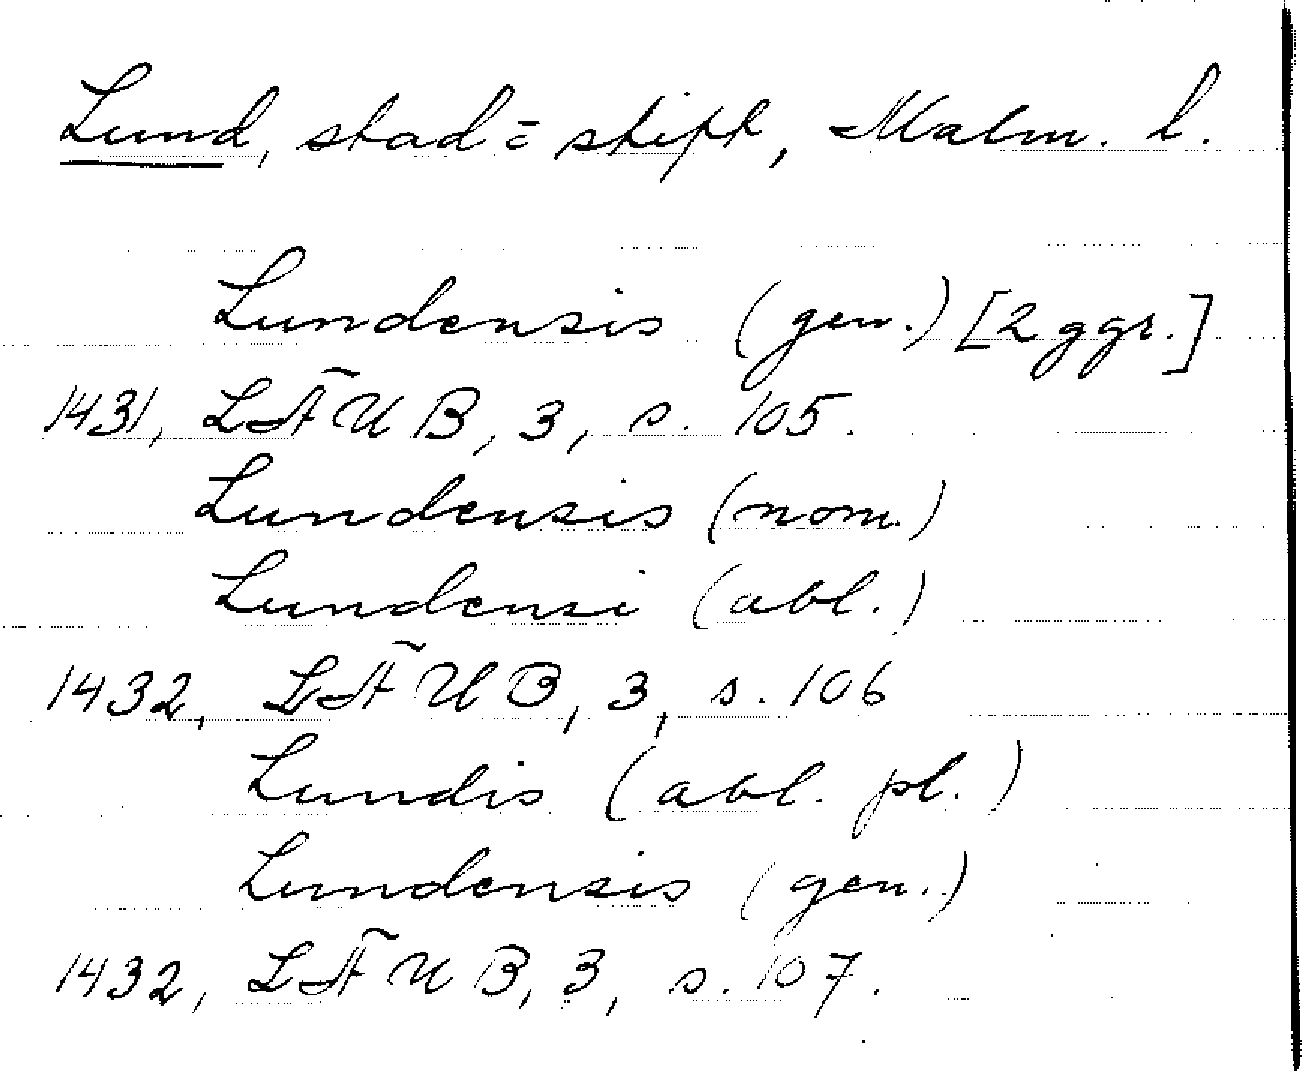 Lund, stad = stift, Malm. l.
Lundensis (gen.) [2 ggr.]
1431, LÄUB, 3, s. 105.
Lundensis (nom.)
Lundensi (abl.)
1432, LÄUB, 3, s. 106
Lundis (abl. pl.)
Lundensis (gen.)
1432, LÄUB, 3, s. 107.